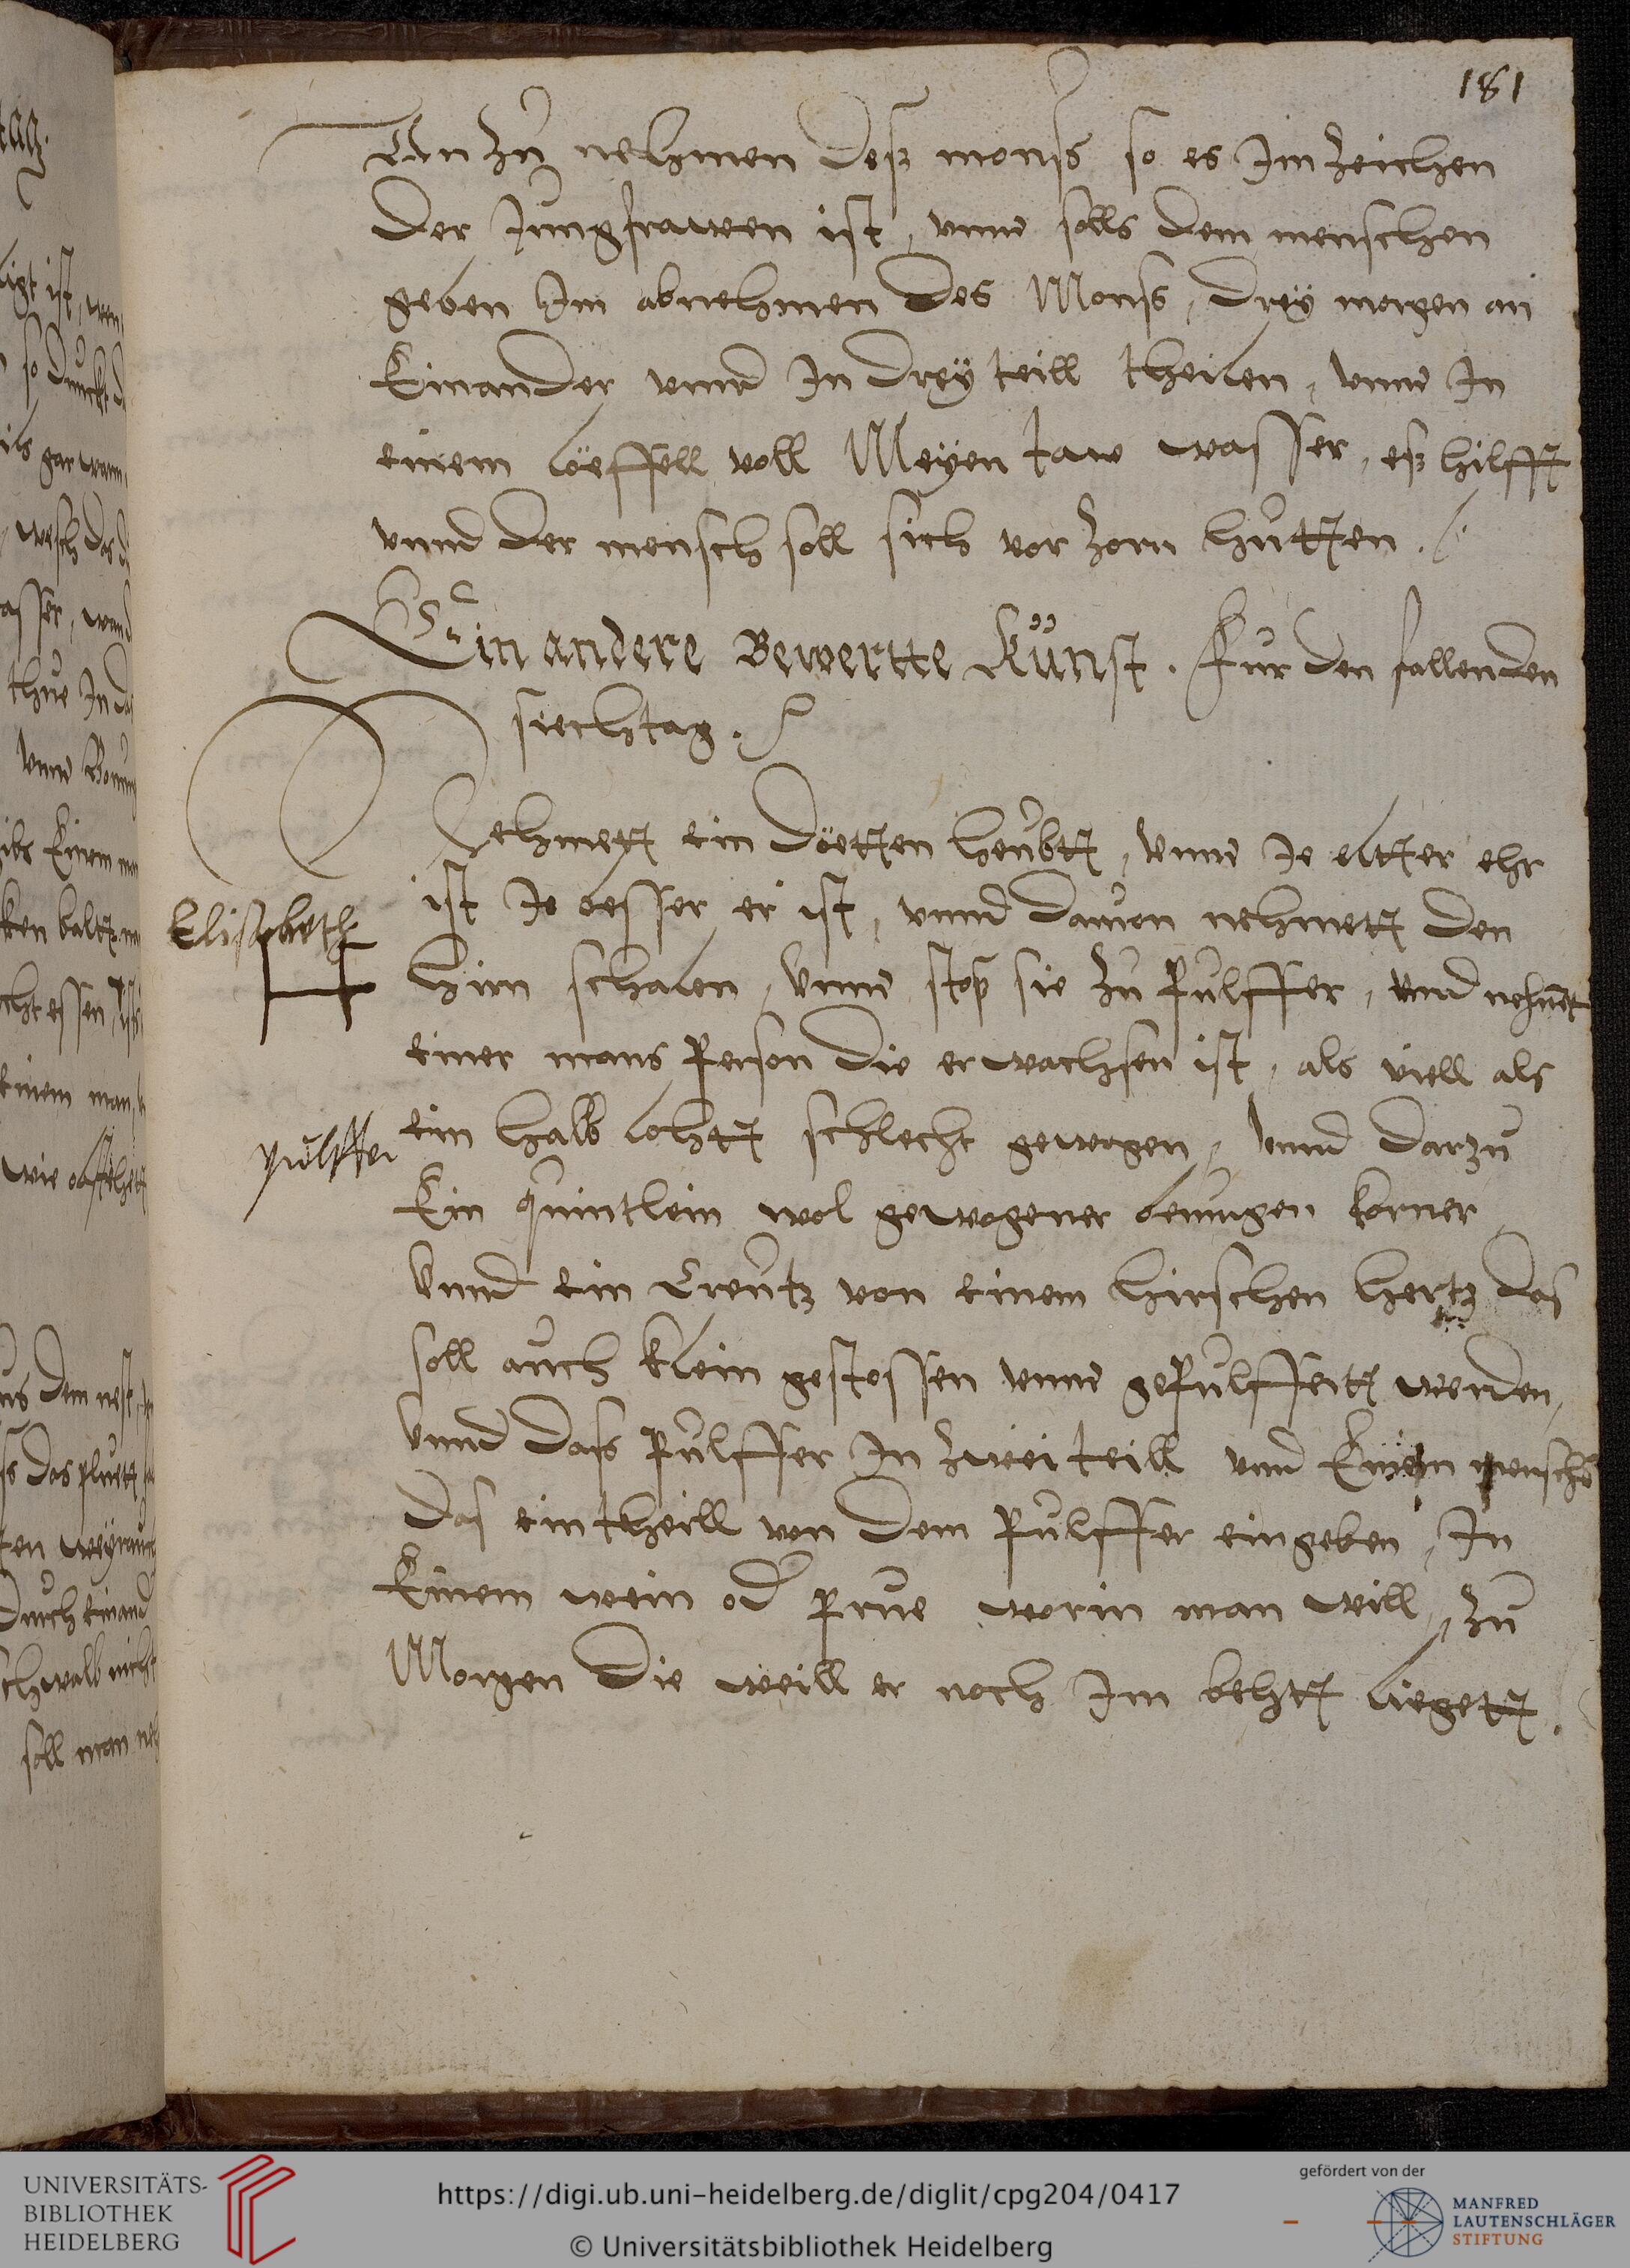 181
Im zu nehmen deß monß so es Im zeichen
der Jungfrawen ist, vnnd solls dem menschen
geben Im abnehmen des Monß, drey morgen an
Einander vnnd In drey teill theilen, vnnd In
einem löeffell voll Meyen taw wasser, eß hilfft
vnnd der mensch soll sich vor zorn hütten.
Ein andere Bewertte Künst. Für den fallenden
siechtag.
Nehmett ein döetten heübtt, vnnd Je eltter ehr
ist Je besser er ist, vnnd dauon nehmett den
Elisabeth
hirn schalen, vnnd stoß sie zu pülffer, vnnd nehmet
einer mans Person die erwachsen ist, als viell als
ein halb lohtt schlecht gewogen, vnnd darzu
pulffer
Ein quintlein wol gewogener körner
vnnd ein Creütz von einem hirschen hertz das
soll auch klein gestossen vnnd gepülffertt werden,
vnnd daß pülffer In zwei teill vnd Einem menschen
das ein theill von dem pülffer eingeben, In
Einem wein od prue worin man will, zu
Morgen die weill er noch Im behtt liegett.
UNIVERSITÄTS-
BIBLIOTHEK
HEIDELBERG
https://digi.ub.uni-heidelberg.de/diglit/cpg204/0417
© Universitätsbibliothek Heidelberg
gefördert von der
MANFRED
LAUTENSCHLÄGER
STIFTUNG